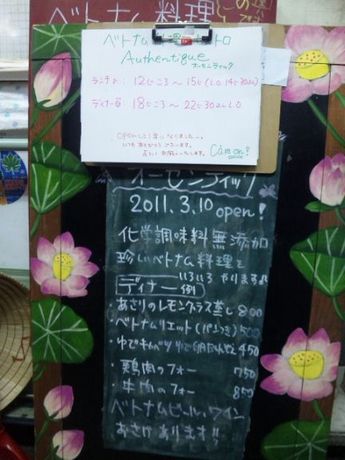 ベトナム料理
Authentique
オーセンティック
ランチ 12じころ〜15じ(L.O.14じ30ふん)
ディナー 18じころ〜22じ30ふんL.O
Cảm ơn!
オーセンティック
2011.3.10 open!
化学調味料無添加
珍しいベトナム料理を
いろいろやります
ディナー(例)
・あさりのレモングラス蒸し 800
・ベトナムリエット(パンつき) 500
450
・鶏肉のフォー 750
・牛肉のフォー 850
ベトナムビール、ワイン
あさけあります!!